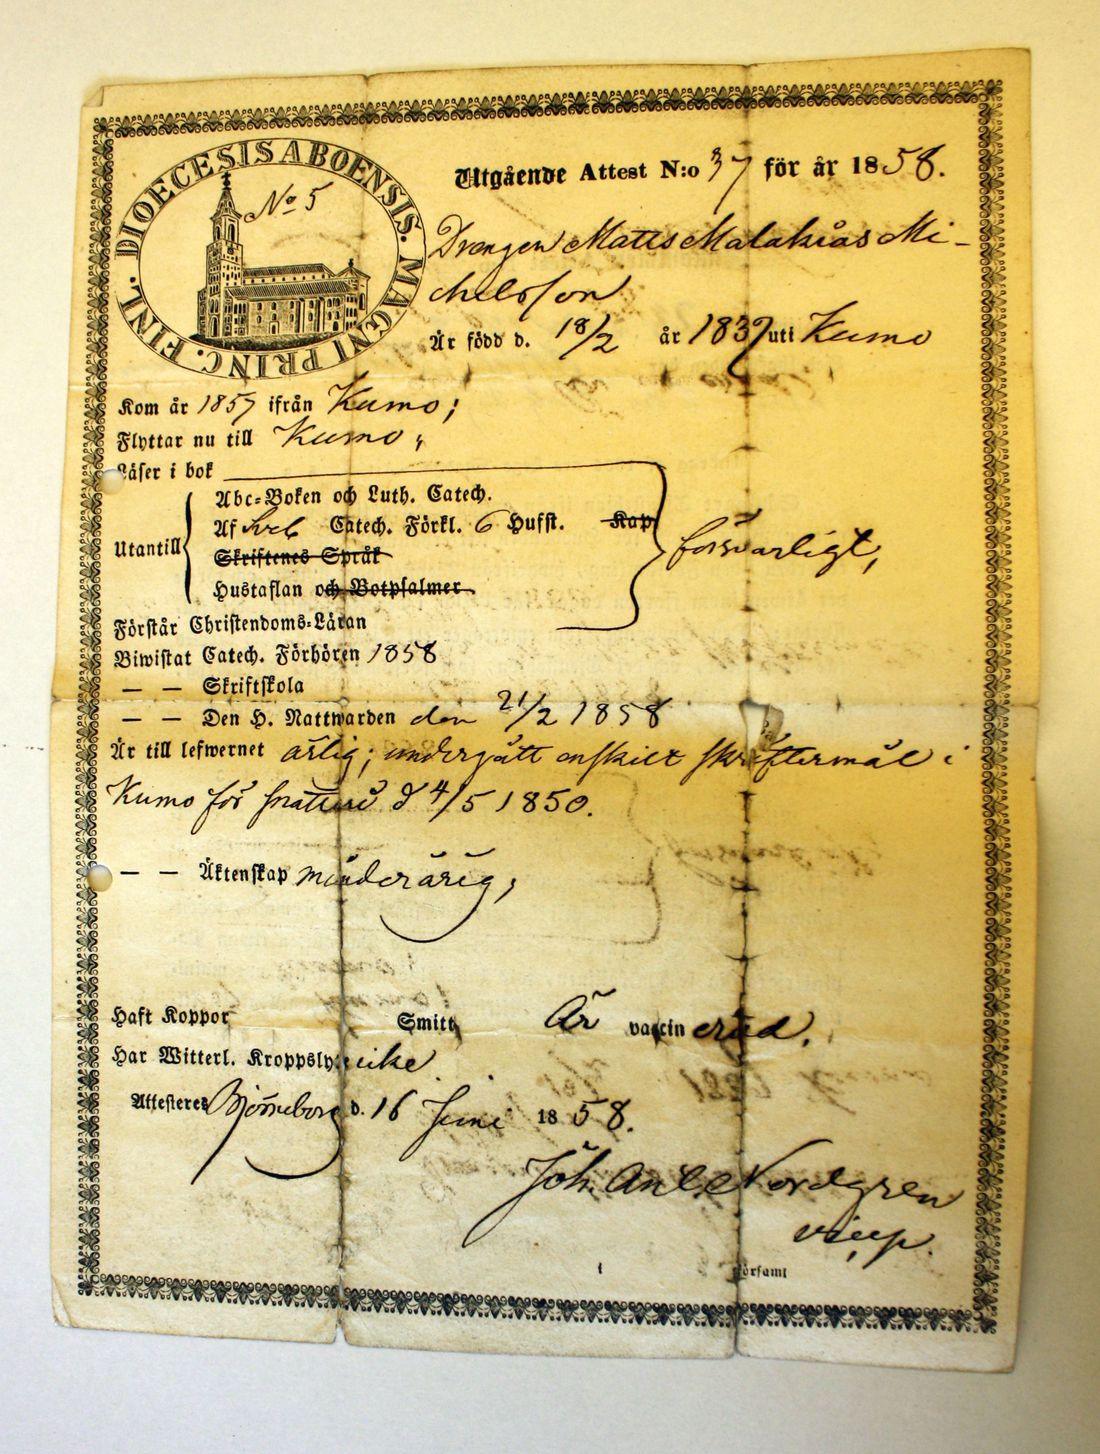 DIOECESIS ABOENSIS. MAGNI PRINC. FINL.
No 5
Utgående Attest N:o 37 för år 1858.
Drengen Matts Malakias Mi-
chelsson
Är född d. 18/2 år 1839 uti Kumo
Kom år 1857 ifrån Kumo;
Flyttar nu till Kumo,
Läser i bok
Abc-Boken och Luth. Catech.
Utantill Af Sveb Catech. Förkl. 6 Hufst. Kap
försvarligt,
Skriftenes Språk
Hustaflan och Botpsalmer
Förstår Christendoms-Läran
Biwistat Catech. Förhören 1858
— — Skriftskola
— — Den H. Nattwarden den 21/2 1858
Är till lefwernet ärlig; undergått enskilt skriftermål i
Kumo för snatteri d 4/5 1850.
— — Äktenskap minderårig,
Haft Koppor Smitt Är vaccinerad.
Har Witterl. Kroppslyte icke
Attesteres Björneborg d. 16 Juni 1858.
Joh. Nordgren
vicep.
i församl